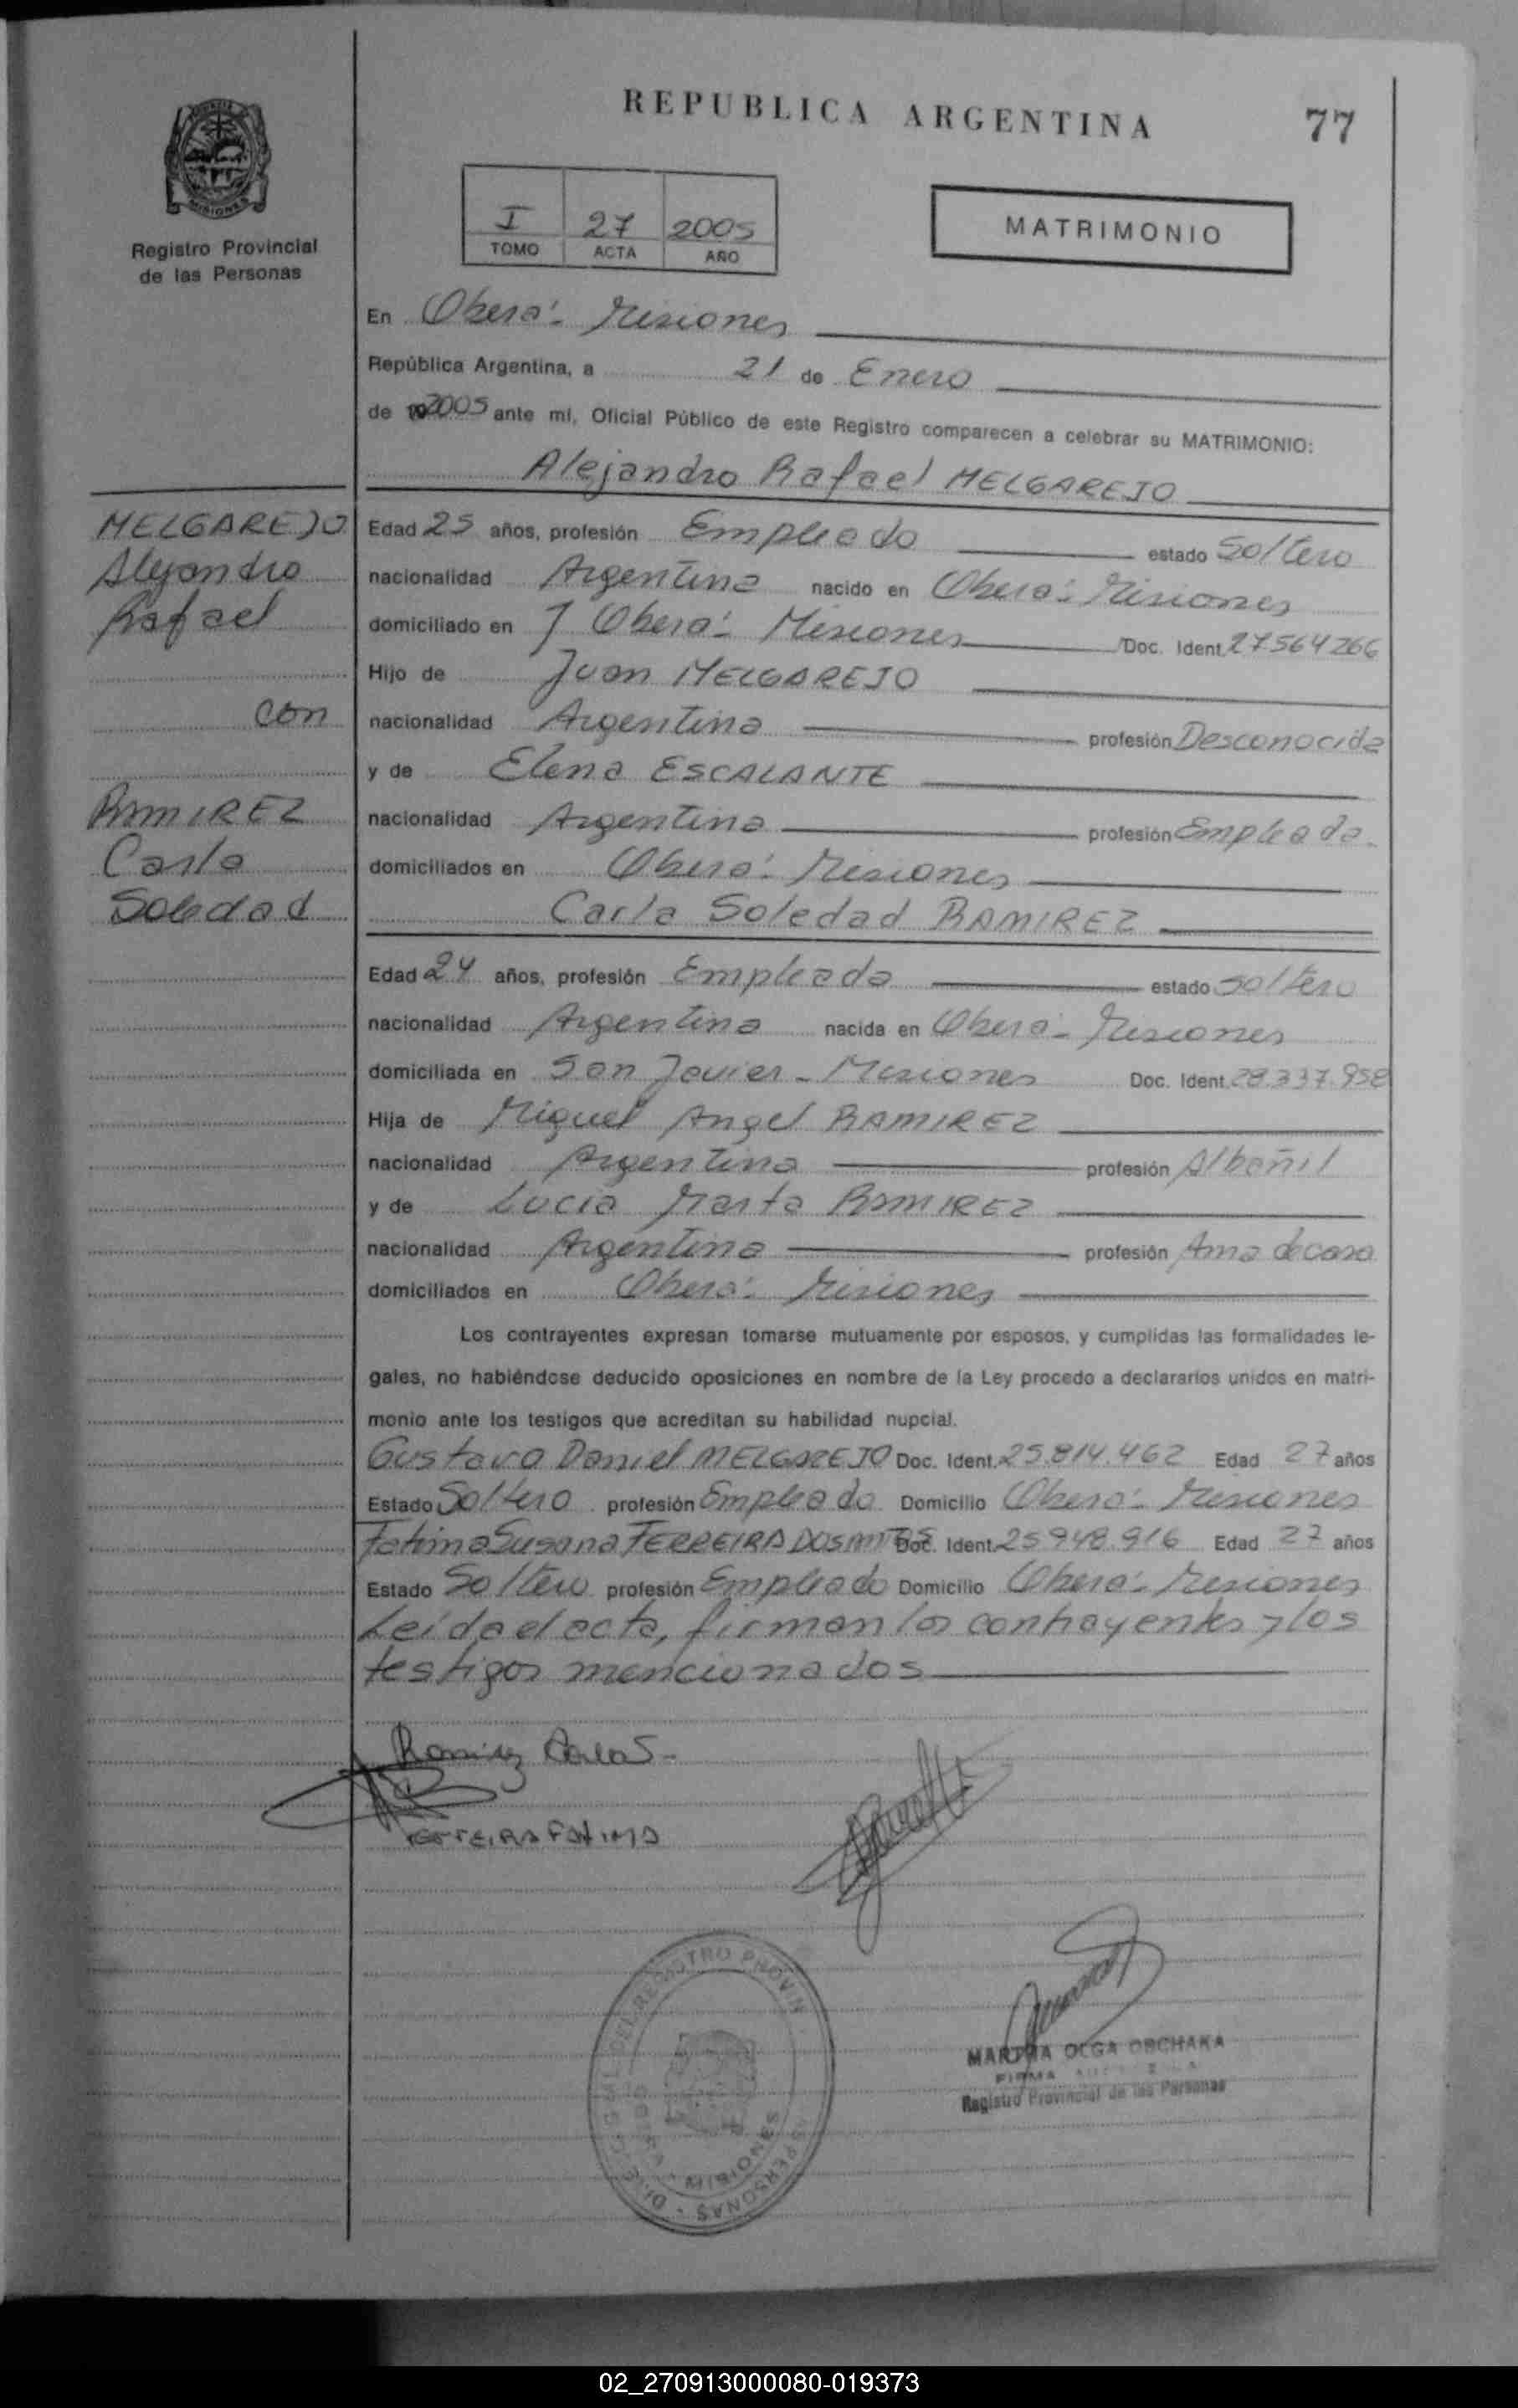 REPUBLICA ARGENTINA
77
MISIONES
Registro Provincial
de las Personas
I 27 2005
TOMO ACTA AÑO
MATRIMONIO
En Oberá - Misiones
República Argentina, a 21 de Enero
de 2005 ante mí, Oficial Público de este Registro comparecen a celebrar su MATRIMONIO:
Alejandro Rafael MELGAREJO
MELGAREJO
Alejandro
Rafael
con
RAMIREZ
Carla
Soledad
Edad 25 años, profesión Empleado estado Soltero
nacionalidad Argentina nacido en Oberá - Misiones
domiciliado en Oberá - Misiones Doc. Ident. 27564266
Hijo de Juan MELGAREJO
nacionalidad Argentina profesión Desconocida
y de Elena ESCALANTE
nacionalidad Argentina profesión Empleada.
domiciliados en Oberá - Misiones
Carla Soledad RAMIREZ
Edad 24 años, profesión Empleada estado Soltera
nacionalidad Argentina nacida en Oberá - Misiones
domiciliada en San Javier - Misiones Doc. Ident. 28.337.958
Hija de Miguel Angel RAMIREZ
nacionalidad Argentina profesión Albañil
y de Lucia Marta RAMIREZ
nacionalidad Argentina profesión Ama de casa
domiciliados en Oberá - Misiones
Los contrayentes expresan tomarse mutuamente por esposos, y cumplidas las formalidades le-
gales, no habiéndose deducido oposiciones en nombre de la Ley procedo a declararlos unidos en matri-
monio ante los testigos que acreditan su habilidad nupcial.
Gustavo Daniel MELGAREJO Doc. Ident. 25.814.462 Edad 27 años
Estado Soltero profesión Empleado Domicilio Oberá - Misiones
Fatima Susana FERREIRA DOS Doc. Ident. 25948.916 Edad 27 años
Estado Soltera profesión Empleado Domicilio Oberá - Misiones
Leída el acta, firman los contrayentes y los
testigos mencionados
Ramirez Carla S.
FERREIRA FATIMA
MARTHA OLGA OBCHAKA
FIRMA
Registro Provincial de las Personas
REGISTRO PROVIN
PERSONAS
MISIONES
02_270913000080-019373